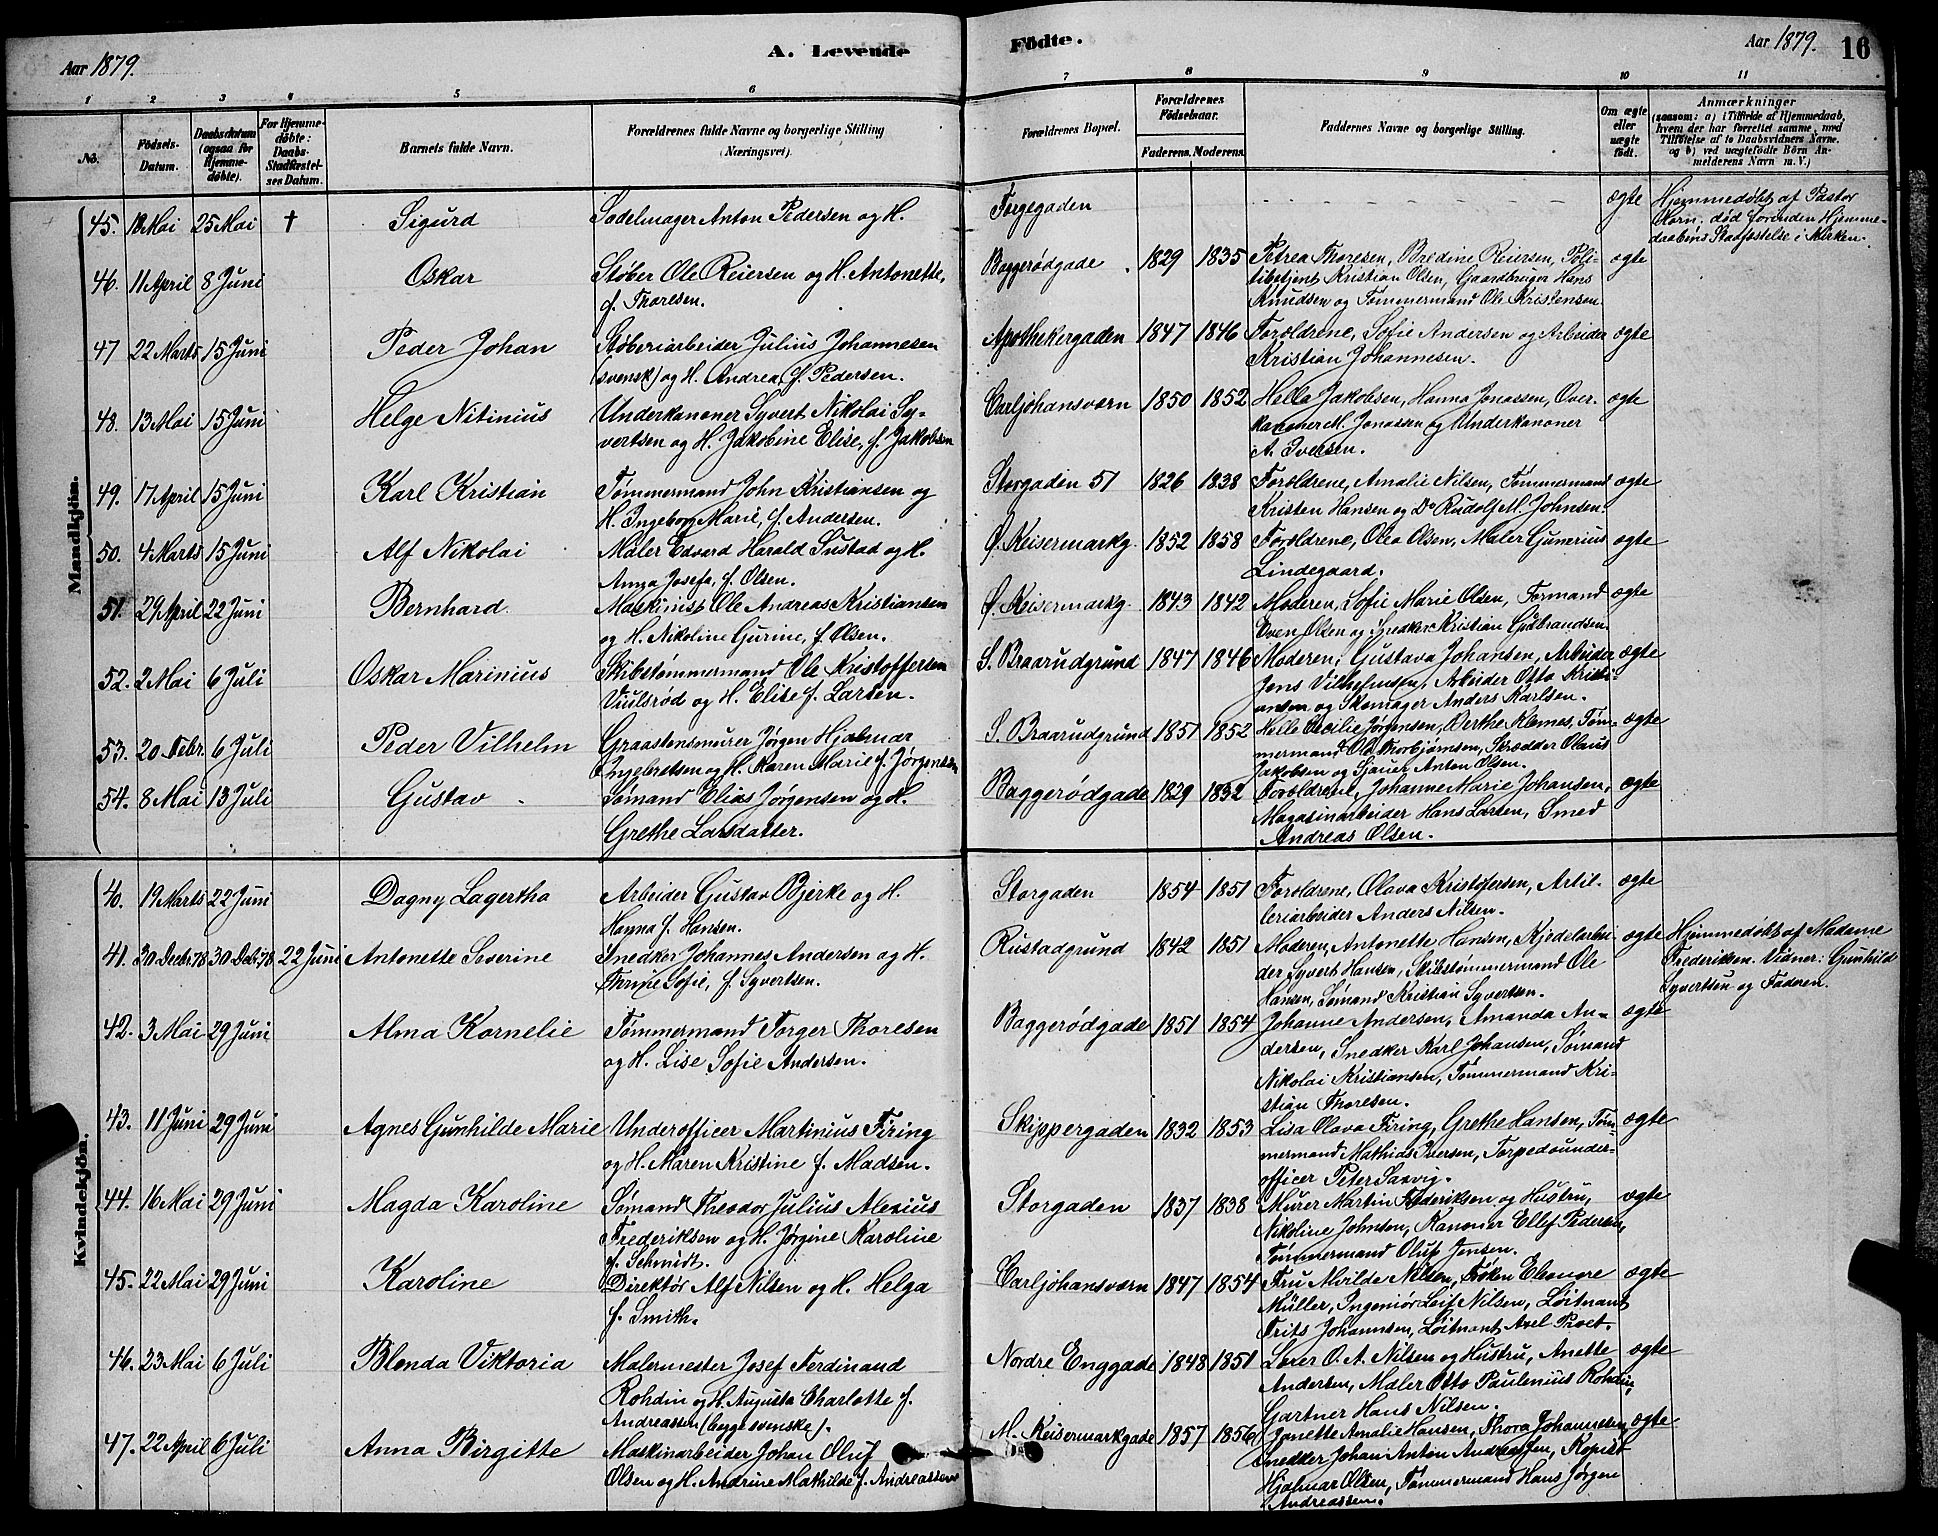 Aar 1879.
A. Levende
Födte.
Aar 1879.
16
1 2 3 4 5 6 7 8 9 10 11
No.
Födsels-Datum.
Daabsdatum (ogsaa for Hjemme-döbte).
For Hjemme-döbte: Daabs-Stadfæstel-ses Datum.
Barnets fulde Navn.
Forældrenes fulde Navne og borgerlige Stilling (Næringsvei).
Forældrenes Bopæl.
Forældrenes Födselsaar.
Faderens. Moderens.
Faddernes Navne og borgerlige Stilling.
Om ægte eller uægte födt.
Anmærkninger
(saasom: a) i Tilfælde af Hjemmedaab, hvem der har forrettet samme, med Tilföielse af to Daabsvidners Navne, og b) ved uægtefödte Börn An-melderens Navn m. V.)
Mandkjön.
45. 18 Mai 25 Mai † Sigurd Sadelmager Anton Pedersen og H. Torgegaden ægte Hjemmedøbt af Pastor
Horn, død forinden Hjemme-
daabens Stadfæstelse i Kirken.
46. 11 April 8 Juni Oskar Støber Ole Reiersen og H. Antonette, Baggerødgade 1829 1835 Petrea Thoresen, Bredine Reiersen, Poli- ægte
f. Thoresen. tibetjent Kristian Olsen, Gaardbruger Hans
Knudsen og Tømmermand Ole Kristensen
47 22 Marts 15 Juni Peder Johan Støberiarbeider Julius Johannesen Apothekergaden 1847 1846 Forældrene, Sofie Andersen og Arbeider ægte
(svensk) og H. Andrea f. Pedersen. Kristian Johannesen.
48. 13 Mai 15 Juni Helge Nitinius Underkanoner Syvert Nikolai Sy- Carljohansværn 1850 1852 Helle Jakobsen, Hanna Jonassen, Over- ægte
vertsen og H. Jakobine Elise, f. Jakobsen kanoner M. Jonassen og Underkanoner
A. Iversen.
49. 17 April 15 Juni Karl Kristian Tømmermand John Kristiansen og Storgaden 51 1826 1838 Forældrene, Amalie Nilsen, Tømmermand ægte
H. Ingeborg Marie, f. Andersen. Kristen Hansen og Do Rudolf M. Johnsen.
50. 4 Marts 15 Juni Alf Nikolai Maler Edvard Harald Sustad og H. Ø. Keisermarkg. 1852 1858 Forældrene, Olea Olsen, Maler Gunerius ægte
Anna Josefa, f. Olsen. Lindegaard.
51. 29 April 22 Juni Bernhard. Maskinist Ole Andreas Kristiansen Ø. Keisermarkg. 1843 1842 Moderen, Sofie Marie Olsen, Formand ægte
og H. Nikoline Gurine, f. Olsen. Even Olsen og Snedker Kristian Gulbrandsen.
52. 2 Mai 6 Juli Oskar Marinius Skibstømmermand Ole Kristoffersen S. Braarudgrund 1847 1846 Moderen, Gustava Johansen, Arbeider ægte
Viulsrød og H. Elise f. Larsen. Jens Vilhelmsen, Arbeider Otto Kristi-
ansen og Skomager Anders Karlsen.
53. 20 Febr. 6 Juli Peder Vilhelm Graastensmurer Jørgen Hjalmar S. Braarudgrund 1851 1852 Helle Cecilie Jørgensen, Berthe Klemes, Tøm- ægte
Ingebretsen og H. Karen Marie f. Jørgensen mermand Ole Thorbjørnsen, Skrædder Olaus
Jakobsen og Sjauer Anton Olsen.
54. 8 Mai 13 Juli Gustav Sømand Elias Jørgensen og H. Baggerødgade 1829 1832 Forældrene, Johanne Marie Johansen, ægte
Grethe Larsdatter. Magasinarbeider Hans Larsen, Smed
Andreas Olsen.
Kvindekjön.
40. 19 Marts 22 Juni Dagny Lagertha Arbeider Gustav Bjerke og H. Storgaden 1854 1851 Forældrene, Olava Kristofersen, Artil- ægte
Hanna f. Hansen. leriarbeider Anders Nilsen.
41. 30 Decbr 78 30 Dcb. 78 22 Juni Antonette Severine Snedker Johannes Andersen og H. Rustadgrund 1842 1851 Moderen, Antonette Hansen, Kjedelarbei- ægte Hjemmedøbt af Madame
Thrine Sofie, f. Syvertsen. der Syvert Hansen, Skibstømmermand Ole Frederiksen. Vidner: Gunhild
Hansen, Sømand Kristian Syvertsen. Syvertsen og Faderen.
42. 3 Mai 29 Juni Alma Kornelie Tømmermand Torger Thoresen Baggerødgade 1851 1854 Johanne Andersen, Amanda An- ægte
og H. Lise Sofie Andersen. dersen, Snedker Karl Johansen, Sømand
Nikolai Kristiansen, Tømmermand Kri-
stian Thoresen.
43. 11 Juni 29 Juni Agnes Gunhilde Marie Underofficer Martinius Firing Skippergaden 1832 1853 Lisa Olava Firing, Grethe Hansen, Tøm- ægte
og H. Maren Kristine f. Madsen. mermand Mathias Iversen, Torpedounder-
officer Peter Saxvig.
44. 16 Mai 29 Juni Magda Karoline Sømand Theodor Julius Alexius Storgaden 1837 1838 Murer Martin Frederiksen og Hustru, ægte
Frederiksen og H. Jørgine Karoline Nikoline Johnsen, Kanoner Ellef Pedersen,
f. Schmidt. Tømmermand Oluf Jensen.
45. 22 Mai 29 Juni Karoline Direktør Alf Nilsen og H. Helga Carljohansværn 1847 1854 Fru Alvilde Nilsen, Frøken Eleonore ægte
f. Smith. Müller, Ingeniør Leif Nilsen, Løitnant
Frits Johannsen, Løitnant Axel Proet.
46. 23 Mai 6 Juli Blenda Viktoria Malermester Josef Ferdinand Nordre Enggade 1848 1851 Laxer O. A. Nilsen og Hustru, Anette ægte
Rohdin og H. Augusta Charlotte f. Andersen, Maler Otto Paulenius Rohdin,
Andreassen (begge svenske). Gartner Hans Nilsen.
47. 22 April 6 Juli Anna Birgitte Maskinarbeider Johan Oluf M. Keisermarkgade 1857 1856 Janette Amalie Hansen, Thora Johannesen, ægte
Olsen og H. Andrine Mathilde f. Andreassen Snedker Johan Anton Andreassen, Kopist
Hjalmar Olsen, Tømmermand Hans Jørgen
Andreassen.